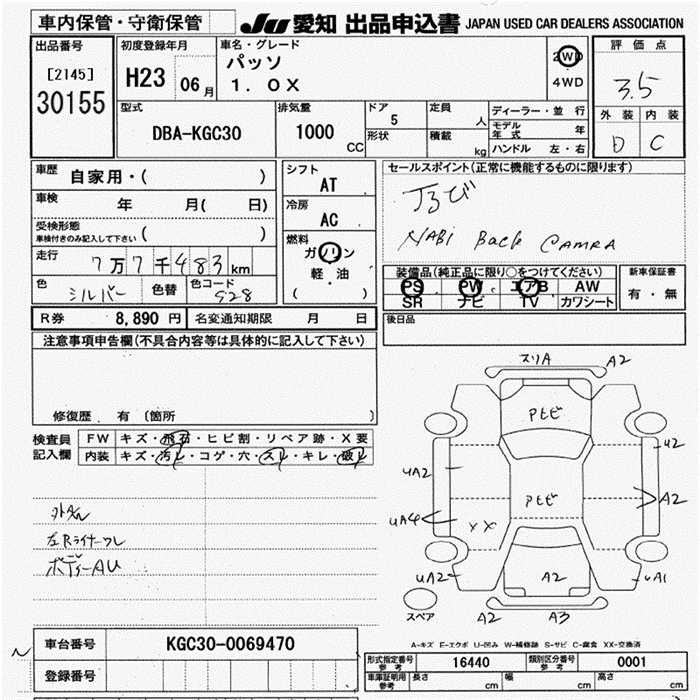 車内保管・守衛保管
JU 愛知 出品申込書 JAPAN USED CAR DEALERS ASSOCIATION
出品番号
[2145]
30155
初度登録年月
H23 06月
車名・グレード
パッソ
1.0X
2WD
4WD
評価点
3.5
外装 内装
D C
型式
DBA-KGC30
排気量
1000 CC
ドア
5
定員
人
形状
積載
kg
ディーラー・並行
モデル年式 年
ハンドル 左・右
車歴
自家用・( )
車検
年 月( 日)
受検形態
車検付きのみ記入して下さい ( )
走行
7万7千483km
色
シルバー
色替
色コード
S28
シフト
AT
冷房
AC
燃料
ガソリン
軽・油
( )
セールスポイント(正常に機能するものに限ります)
NABI Back CAMRA
装備品(純正品に限り○をつけてください)
PS PW エアB AW
SR ナビ TV カワシート
新車保証書
有・無
R券 8,890 円 名変通知期限 月 日
後日品
注意事項申告欄(不具合内容等は具体的に記入して下さい)
修復歴 有 〔箇所 〕
検査員記入欄
FW キズ・飛石・ヒビ割・リペア跡・X要
内装 キズ・汚レ・コゲ・穴・スレ・キレ・破レ
左Rライナーフレ
ボディーAU
スリA A2
Pヒビ
U2
uA2
Pヒビ
A2
uA4
XX
uA2
A2
uA1
スペア
A2 A3
A-キズ E-エクボ U-凹み W-補修跡 S-サビ C-腐食 XX-交換済
車台番号 KGC30-0069470
登録番号
形式指定番号 参考 16440 類別区分番号 参考 0001
車庫証明用 参考 長さ cm 幅 cm 高さ cm